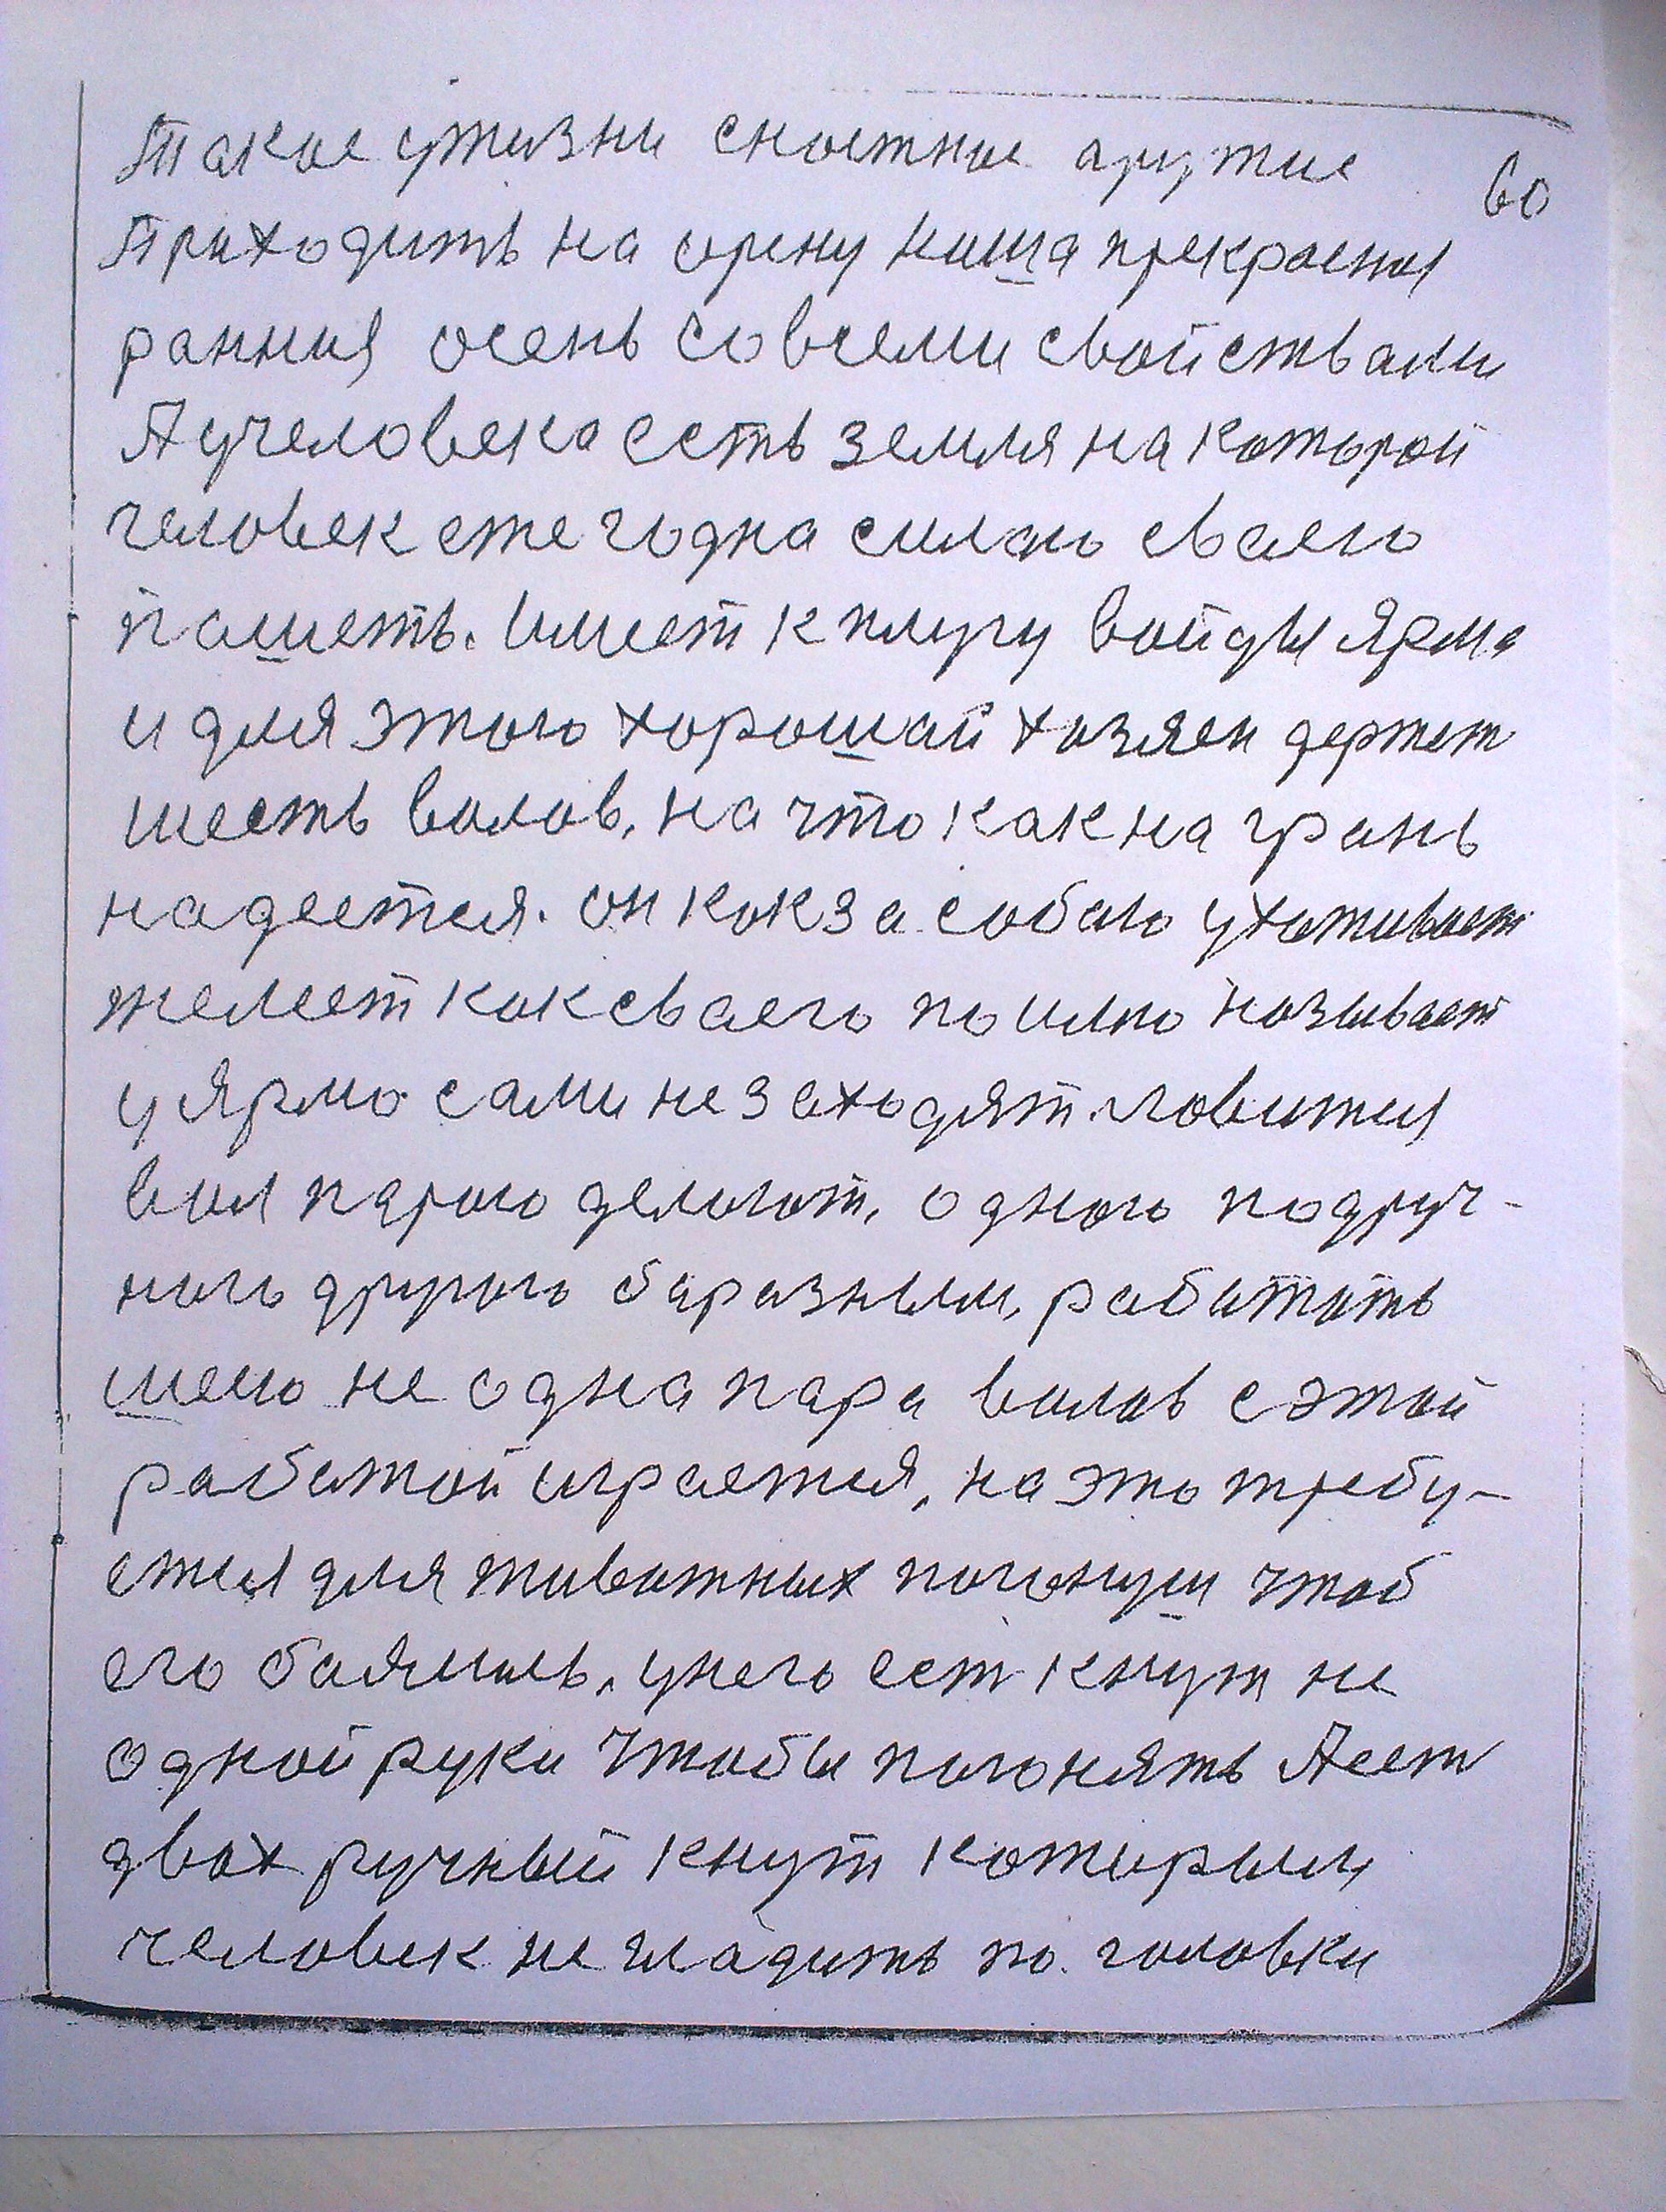 Такое у жизни сностное оружие
60
Приходить на орену наша прекрасная
ранния осень со всеми свойствами
А учеловека есть земля на которой
человек ежегодна силаю сваею
пашеть. Имеет к плугу войды ярма
и для этого хорошай хозяен держет
шесть волов, на что как на грань
надеется. он как за собаю ухаживает
желеет как сваего по имю называет
у ярмо сами не заходят. ловится
вол парою делают, одного подруч-
ного другого баразным, работать
шею не одна пара волов с этой
работой играется, на это требу-
ется для животных погонущ чтоб
его баялись, унего ест кнут не
одной руки чтобы погонять А ест
двох ручный кнут котырым
человек не гладить по головки